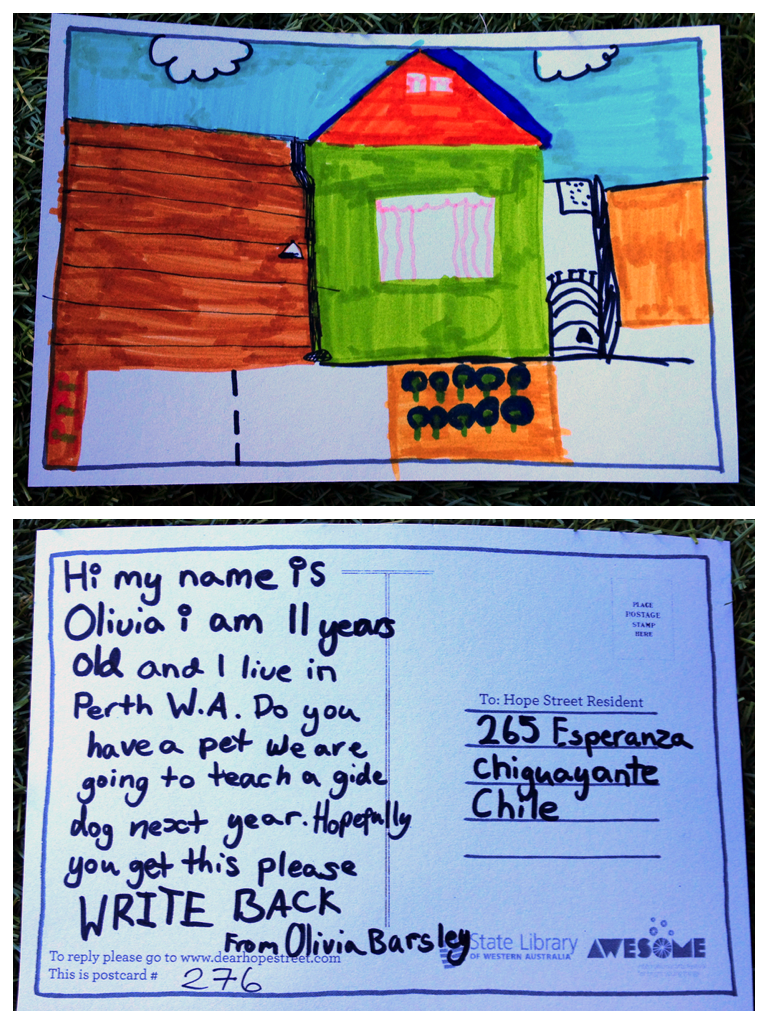 Hi my name is
Olivia i am 11 years
old and I live in
Perth W.A. Do you
have a pet we are
going to teach a gide
dog next year. Hopefully
you get this please
WRITE BACK
From Olivia Barsley
To reply please go to www.dearhopestreet.com
This is postcard # 276
PLACE
POSTAGE
STAMP
HERE
To: Hope Street Resident
265 Esperanza
chiguayante
Chile
State Library
OF WESTERN AUSTRALIA
AWESOME